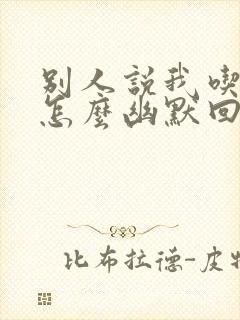 别人説我喫
怎麽幽默回
比布拉德-皮特